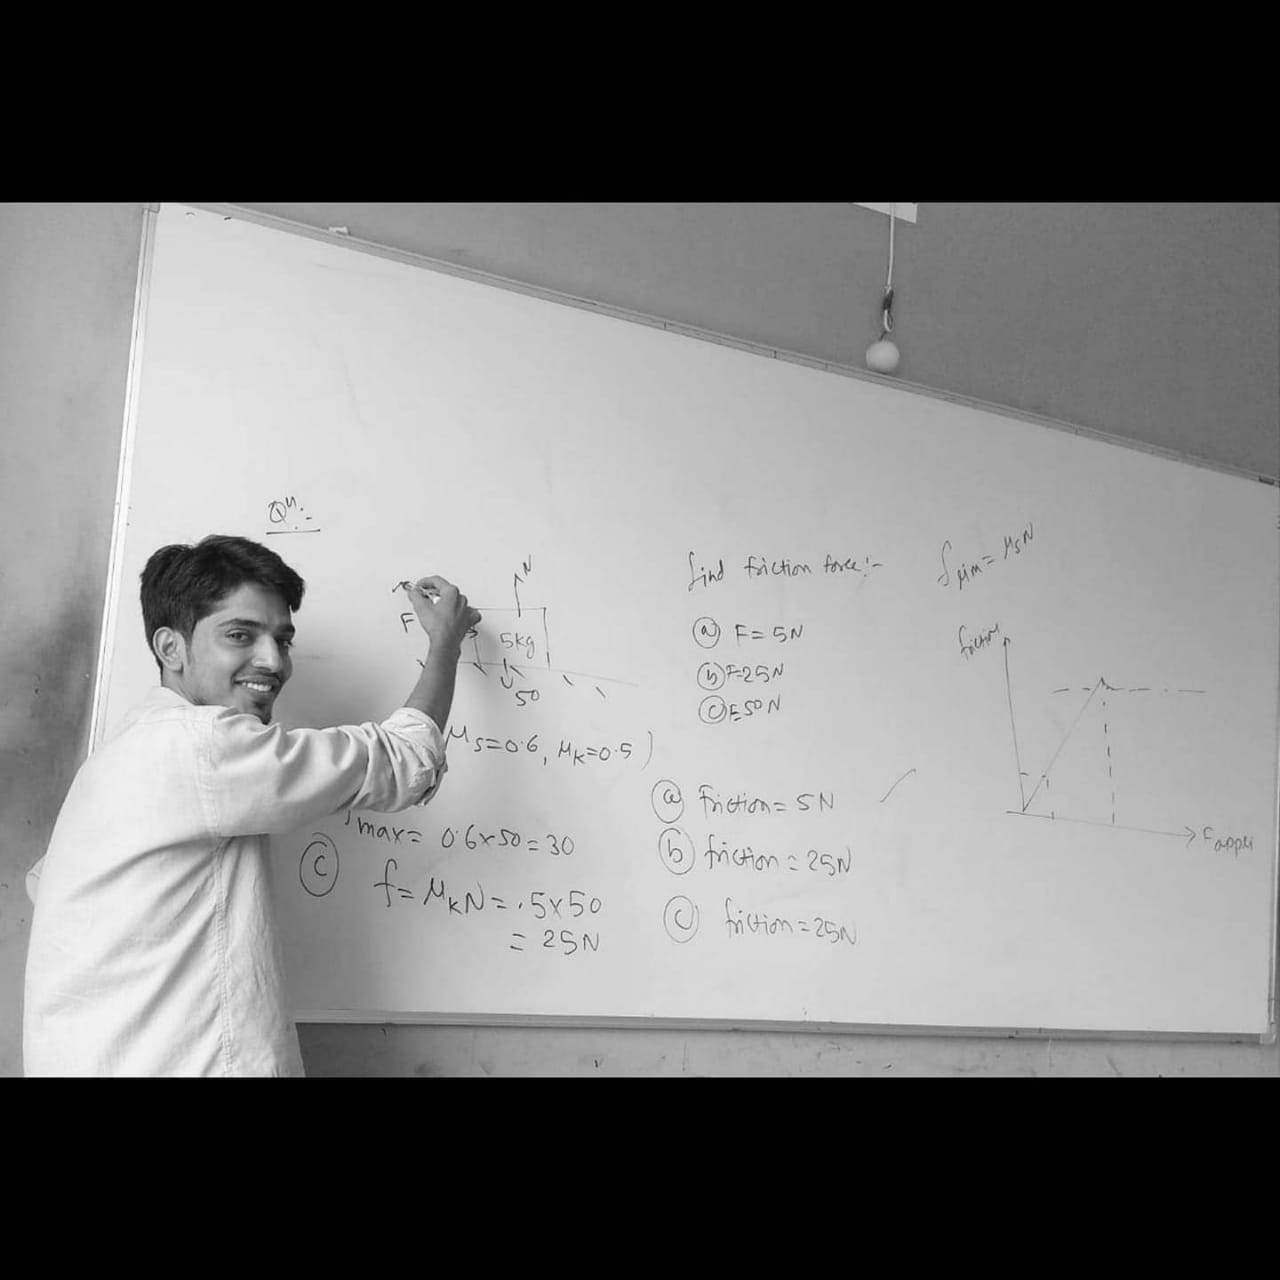 Qⁿ:-
N
F
5kg
50
μs=0.6, μk=0.5)
max= 0.6x50=30
C
f=μkN=.5x50
= 25N
find friction force:-
a F= 5N
b F=25N
c F=50N
a Friction= 5N
b friction = 25N
c friction=25N
flim=μsN
friction
Fappli